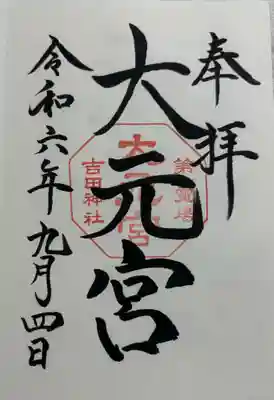 奉拝
大元宮
令和六年九月四日
大元宮
吉田神社